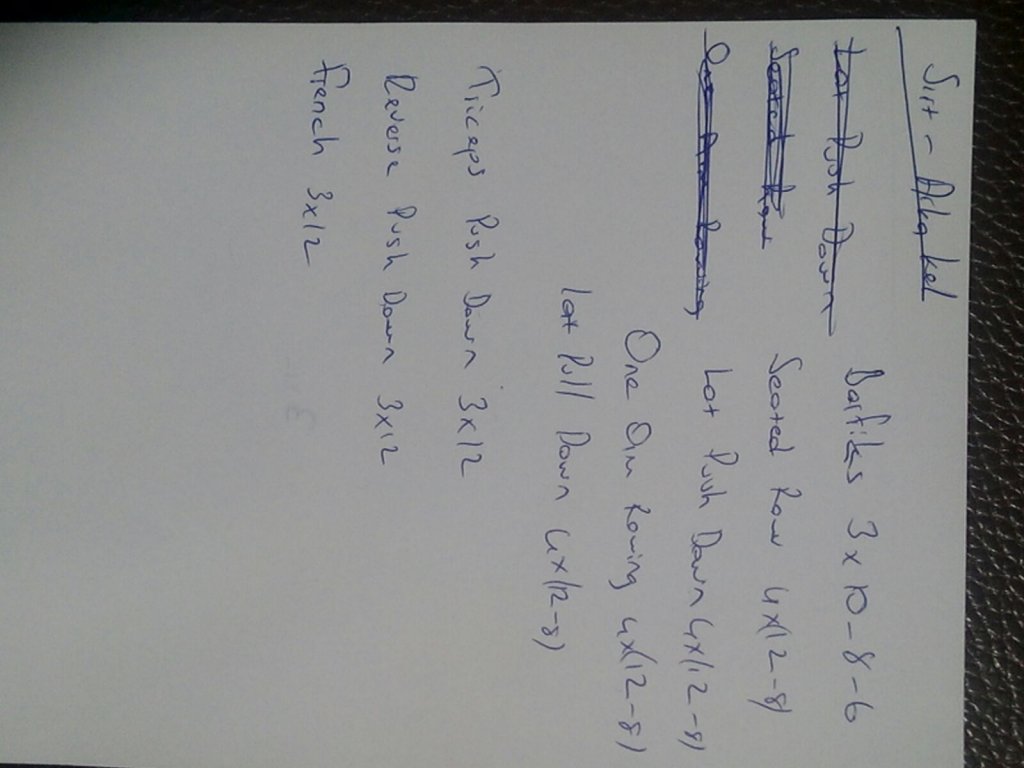 Sırt - Arka kol
Lat Push Down
Barfiks 3x10-8-6
Seated Row
Seated Row 4x(12-8)
One Arm Rowing
Lat Push Down 4x(12-8)
One Arm Rowing 4x(12-8)
Lat Pull Down 4x(12-8)
Triceps Push Down 3x12
Reverse Push Down 3x12
French 3x12